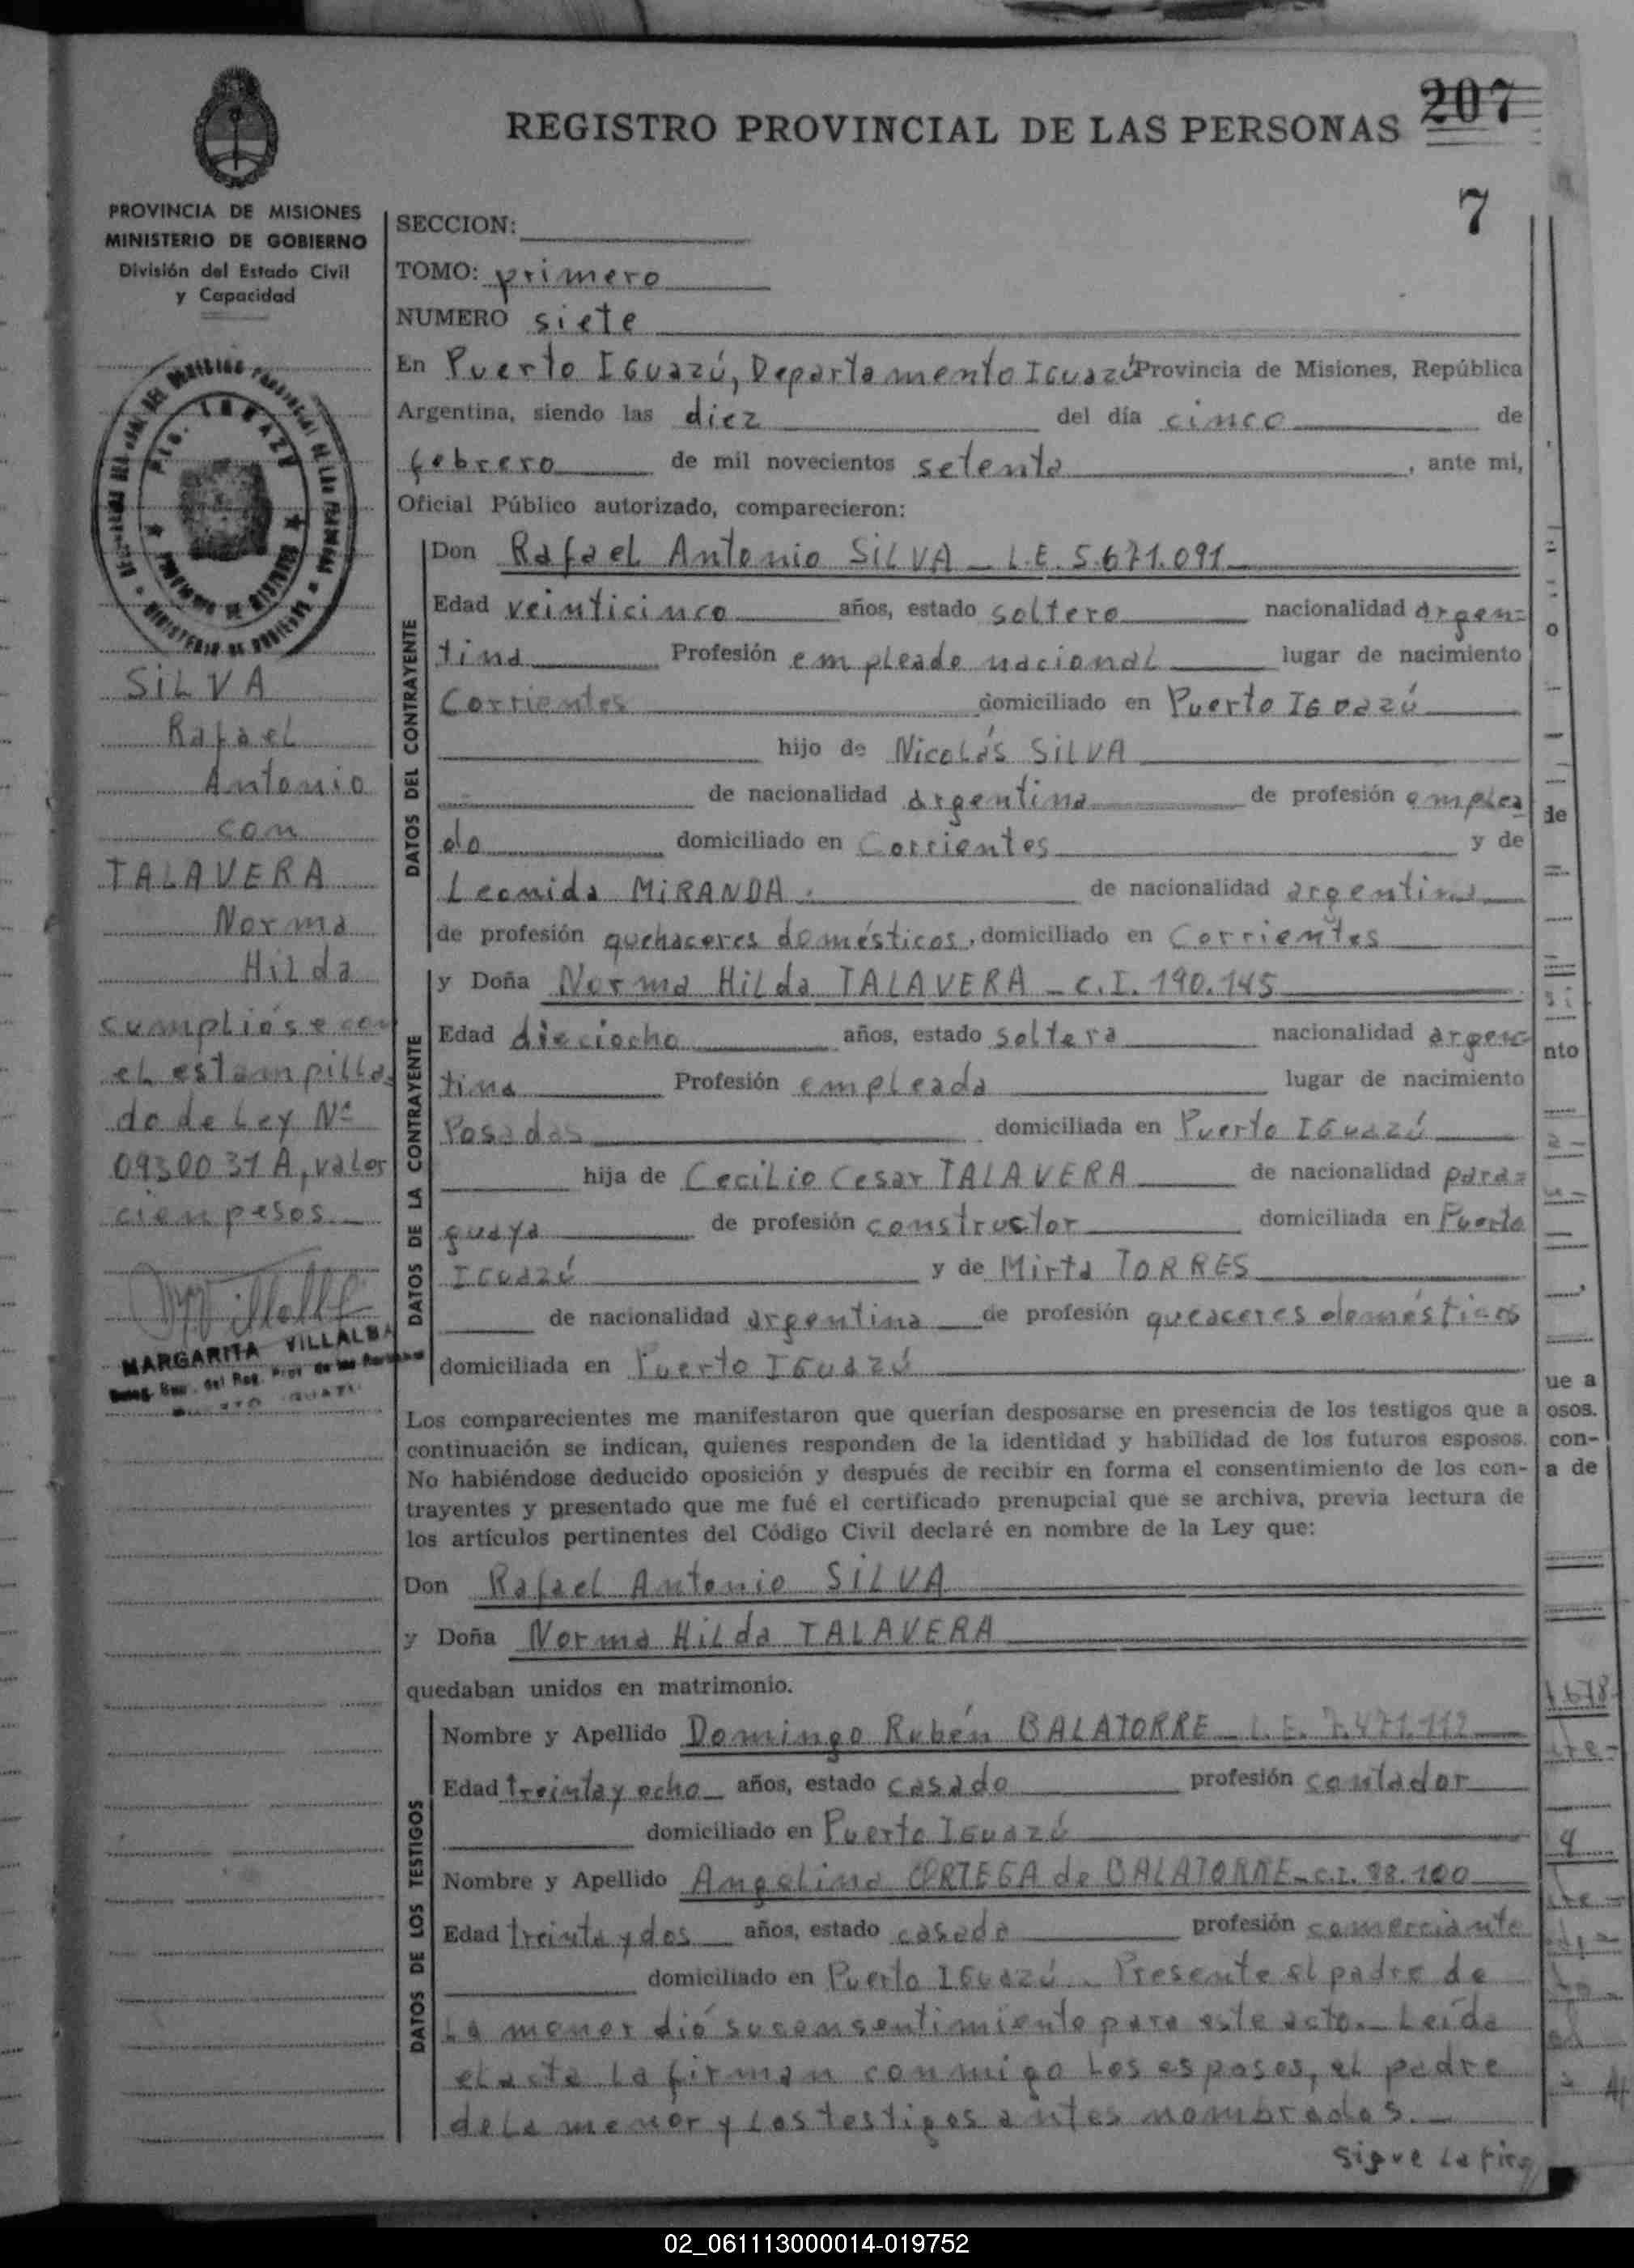 REGISTRO PROVINCIAL DE LAS PERSONAS 207
7
PROVINCIA DE MISIONES
MINISTERIO DE GOBIERNO
División del Estado Civil
y Capacidad
SILVA
Rafael
Antonio
con
TALAVERA
Norma
Hilda
cumplióse con
el estampilla
do de Ley Nº
0930031 A, valor
cien pesos
MARGARITA VILLALBA
SECCION:
TOMO: primero
NUMERO siete
En Puerto Iguazú, Departamento Iguazú Provincia de Misiones, República
Argentina, siendo las diez del día cinco de
febrero de mil novecientos setenta, ante mi,
Oficial Público autorizado, comparecieron:
DATOS DEL CONTRAYENTE
Don Rafael Antonio SILVA - L.E. 5.671.091
Edad veinticinco años, estado soltero nacionalidad argen=
tina Profesión empleado nacional lugar de nacimiento
Corrientes domiciliado en Puerto Iguazú
hijo de Nicolás SILVA
de nacionalidad argentina de profesión emplea
do domiciliado en Corrientes y de
Leonida MIRANDA de nacionalidad argentina
de profesión quehaceres domésticos, domiciliado en Corrientes
DATOS DE LA CONTRAYENTE
y Doña Norma Hilda TALAVERA - C.I. 190.145
Edad dieciocho años, estado soltera nacionalidad argen
tina Profesión empleada lugar de nacimiento
Posadas domiciliada en Puerto Iguazú
hija de Cecilio Cesar TALAVERA de nacionalidad para=
guaya de profesión constructor domiciliada en Puerto
Iguazú y de Mirta TORRES
de nacionalidad argentina de profesión queaceres domésticos
domiciliada en Puerto Iguazú
Los comparecientes me manifestaron que querían desposarse en presencia de los testigos que a
continuación se indican, quienes responden de la identidad y habilidad de los futuros esposos.
No habiéndose deducido oposición y después de recibir en forma el consentimiento de los con-
trayentes y presentado que me fué el certificado prenupcial que se archiva, previa lectura de
los artículos pertinentes del Código Civil declaré en nombre de la Ley que:
Don Rafael Antonio SILVA
y Doña Norma Hilda TALAVERA
quedaban unidos en matrimonio.
DATOS DE LOS TESTIGOS
Nombre y Apellido Domingo Rubén BALATORRE - L.E. 7.471.112
Edad treinta y ocho años, estado casado profesión contador
domiciliado en Puerto Iguazú
Nombre y Apellido Angelina ORTEGA de BALATORRE - C.I. 88.100
Edad treinta y dos años, estado casada profesión comerciante
domiciliado en Puerto Iguazú. Presente el padre de
la menor dió su consentimiento para este acto. Leída
el acta la firman conmigo los esposos, el padre
de la menor y los testigos antes nombrados.
Sigue la fir
de
nto
ue a
osos.
con-
a de
02_061113000014-019752